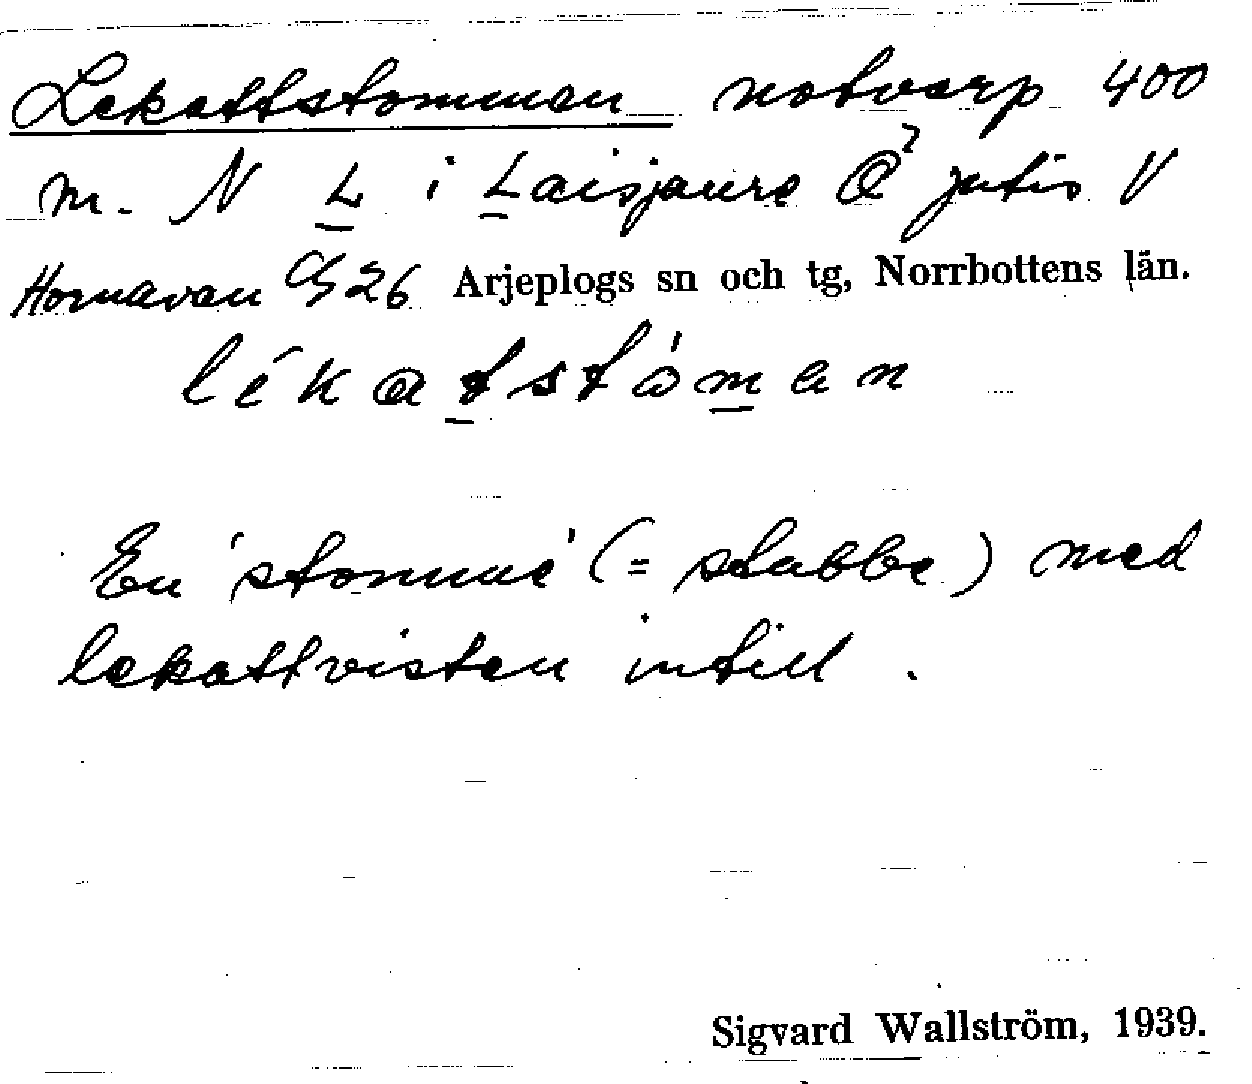 Lekattstomman notvarp 400
m. N L i Laisjaure jutis V
Hornavan 26 Arjeplogs sn och tg, Norrbottens län.
lékatstòman
En 'stomme' (= stubbe) med
lekattvisten intill.
Sigvard Wallström, 1939.